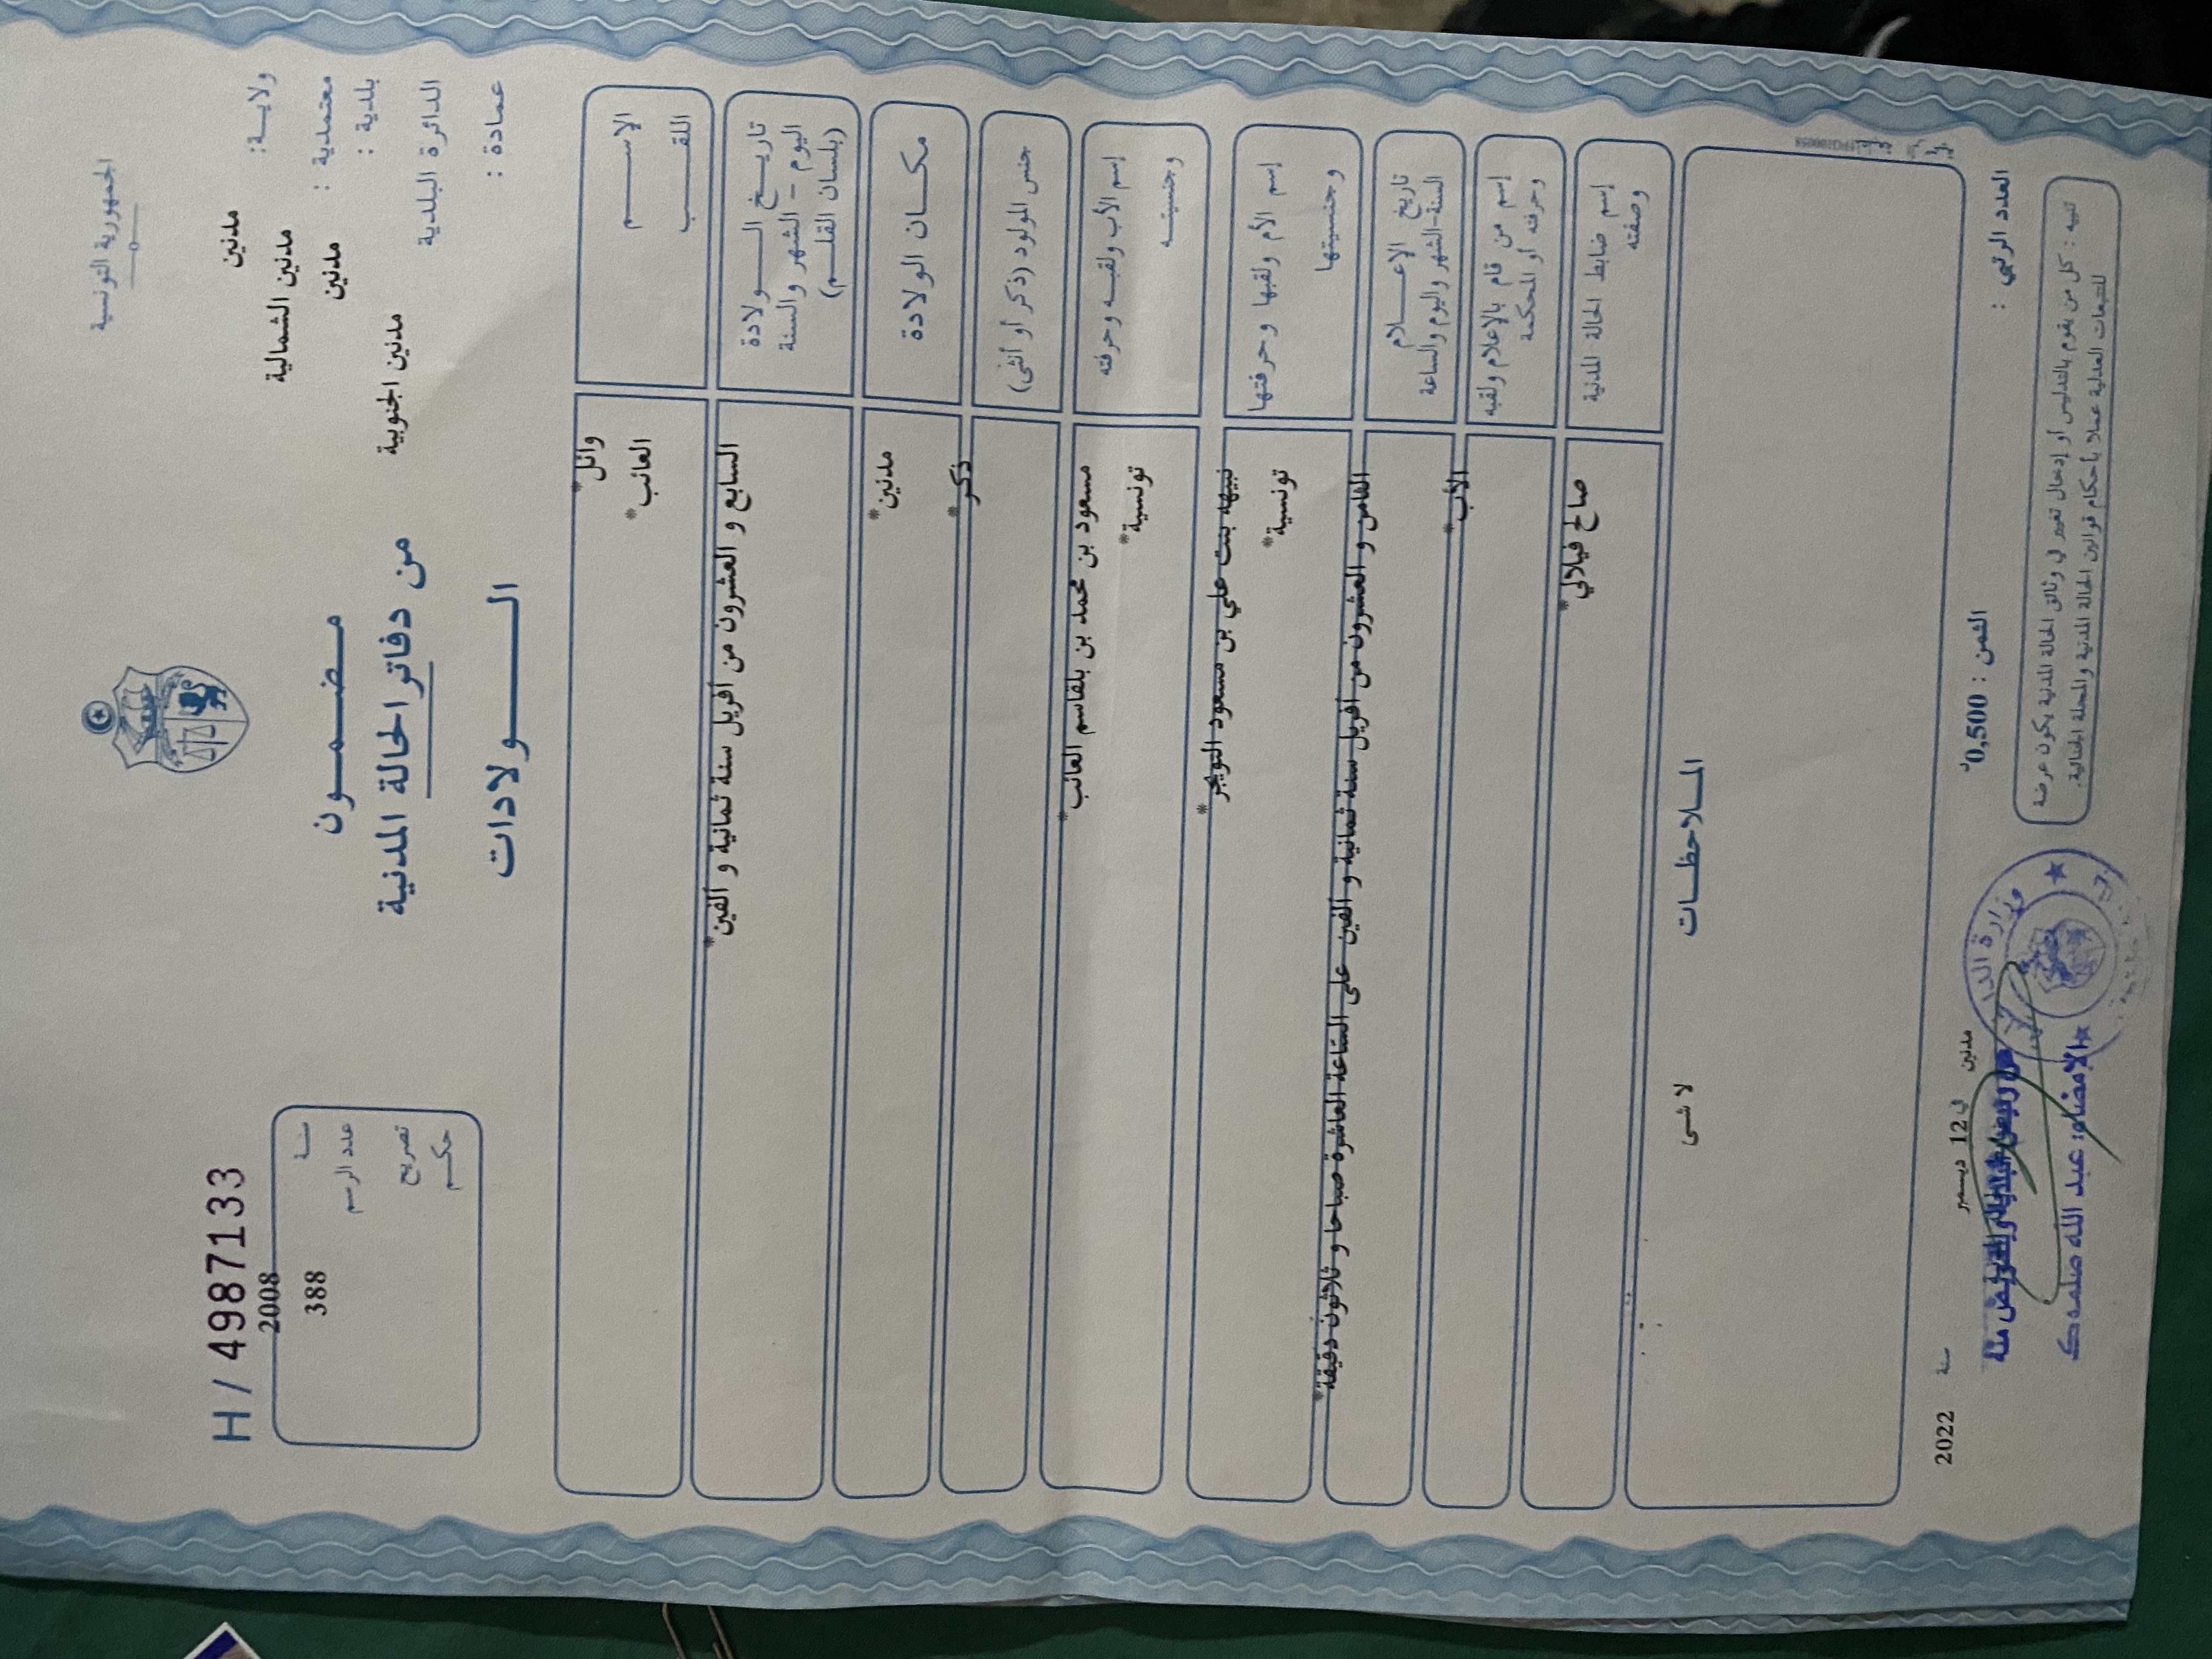 الجمهورية التونسية
H / 4987133
ولايـــة: مدنين
معتمدية : مدنين الشمالية
بلدية : مدنين
الدائرة البلدية مدنين الجنوبية
عمادة :
مـــضـــمـــون
من دفاتر الحالة المدنية
الـــــولادات
سنــة 2008
عدد الرسم 388
تصريح
حكــم
الإســـــم وائل*
اللقـــب العائب*
تاريـــخ الـــــولادة السابع و العشرون من أفريل سنة ثمانية و ألفين*
اليوم - الشهر والسنة
(بلسان القلـــم)
مكـــان الولادة مدنين*
جنس المولود (ذكر أو أنثى) ذكر*
إسم الأب ولقبـــه وحرفته مسعود بن محمد بن بلقاسم العائب*
وجنسيتـــه تونسية*
إسم الأم ولقبها وحرفتها نبيهه بنت علي بن مسعود التويجر*
وجنسيتها تونسية*
تاريخ الإعـــــلام الثامن و العشرون من أفريل سنة ثمانية و ألفين على الساعة العاشرة صباحا و ثلاثون دقيقة*
السنة-الشهر واليوم والساعة
إسم من قام بالإعلام ولقبه الأب*
وحرفته أو المحكمة
إسم ضابط الحالة المدنية صالح فيلالي*
وصفته
المـــلاحظـــات
لا شئ
العدد الرتبي :
الثمن : 0,500د
مدنين في 12 ديسمبر سنة 2022
تنبيه : كل من يقوم بالتدليس أو إدخال تغيير في وثائق الحالة المدنية يكون عرضة
للتتبعات العدلية عملا بأحكام قوانين الحالة المدنية والمجلة الجنائية.
وزارة الدا
الإمضاء: عبد الله